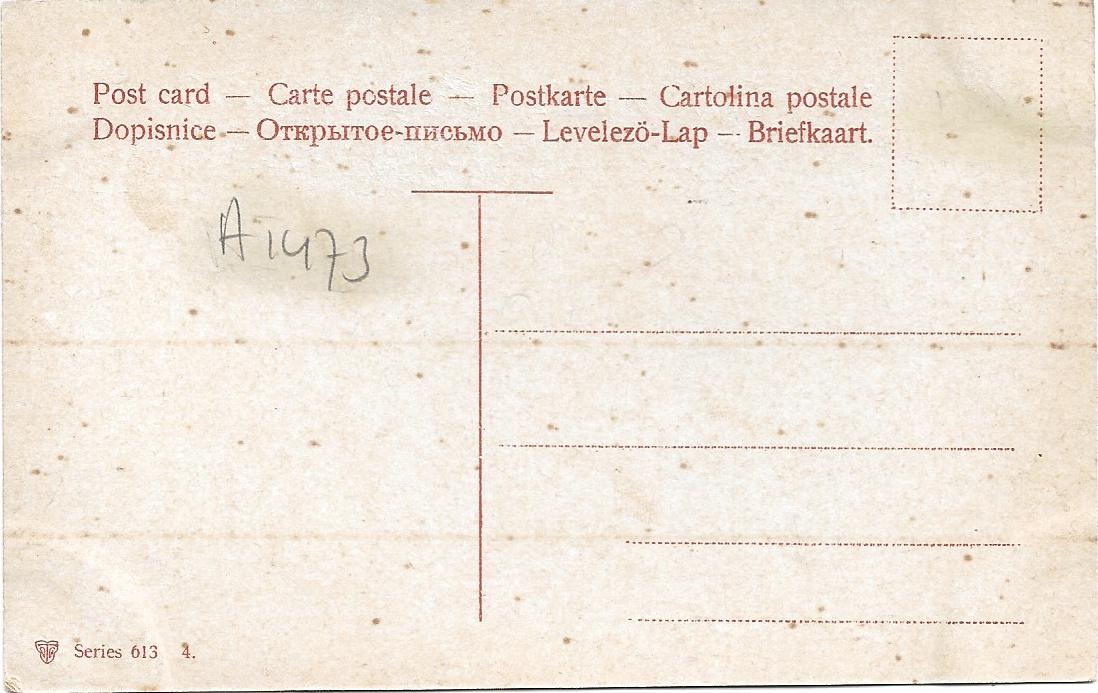 Post card — Carte postale — Postkarte — Cartolina postale
Dopisnice — Открытое-письмо — Levelezö-Lap — Briefkaart.
A1473
Series 613 4.